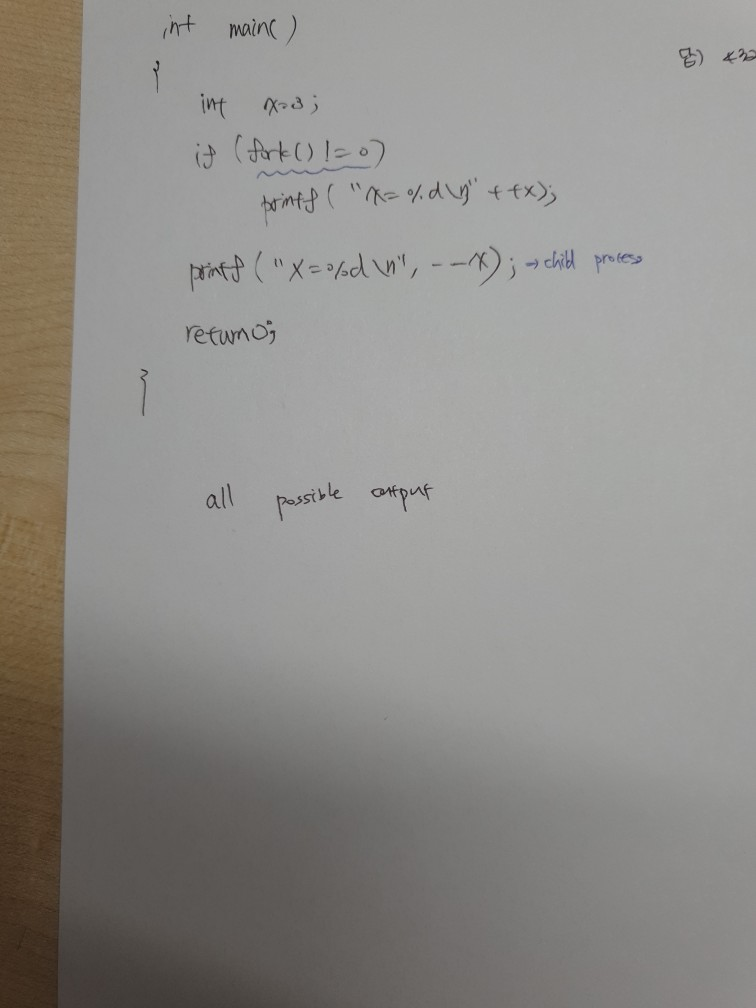 int main()
답)
{
int x=3;
if (fork() != 0)
printf ("x=%d\n" ++x);
printf ("x=%d\n", --x); → child process
return 0;
}
all possible output